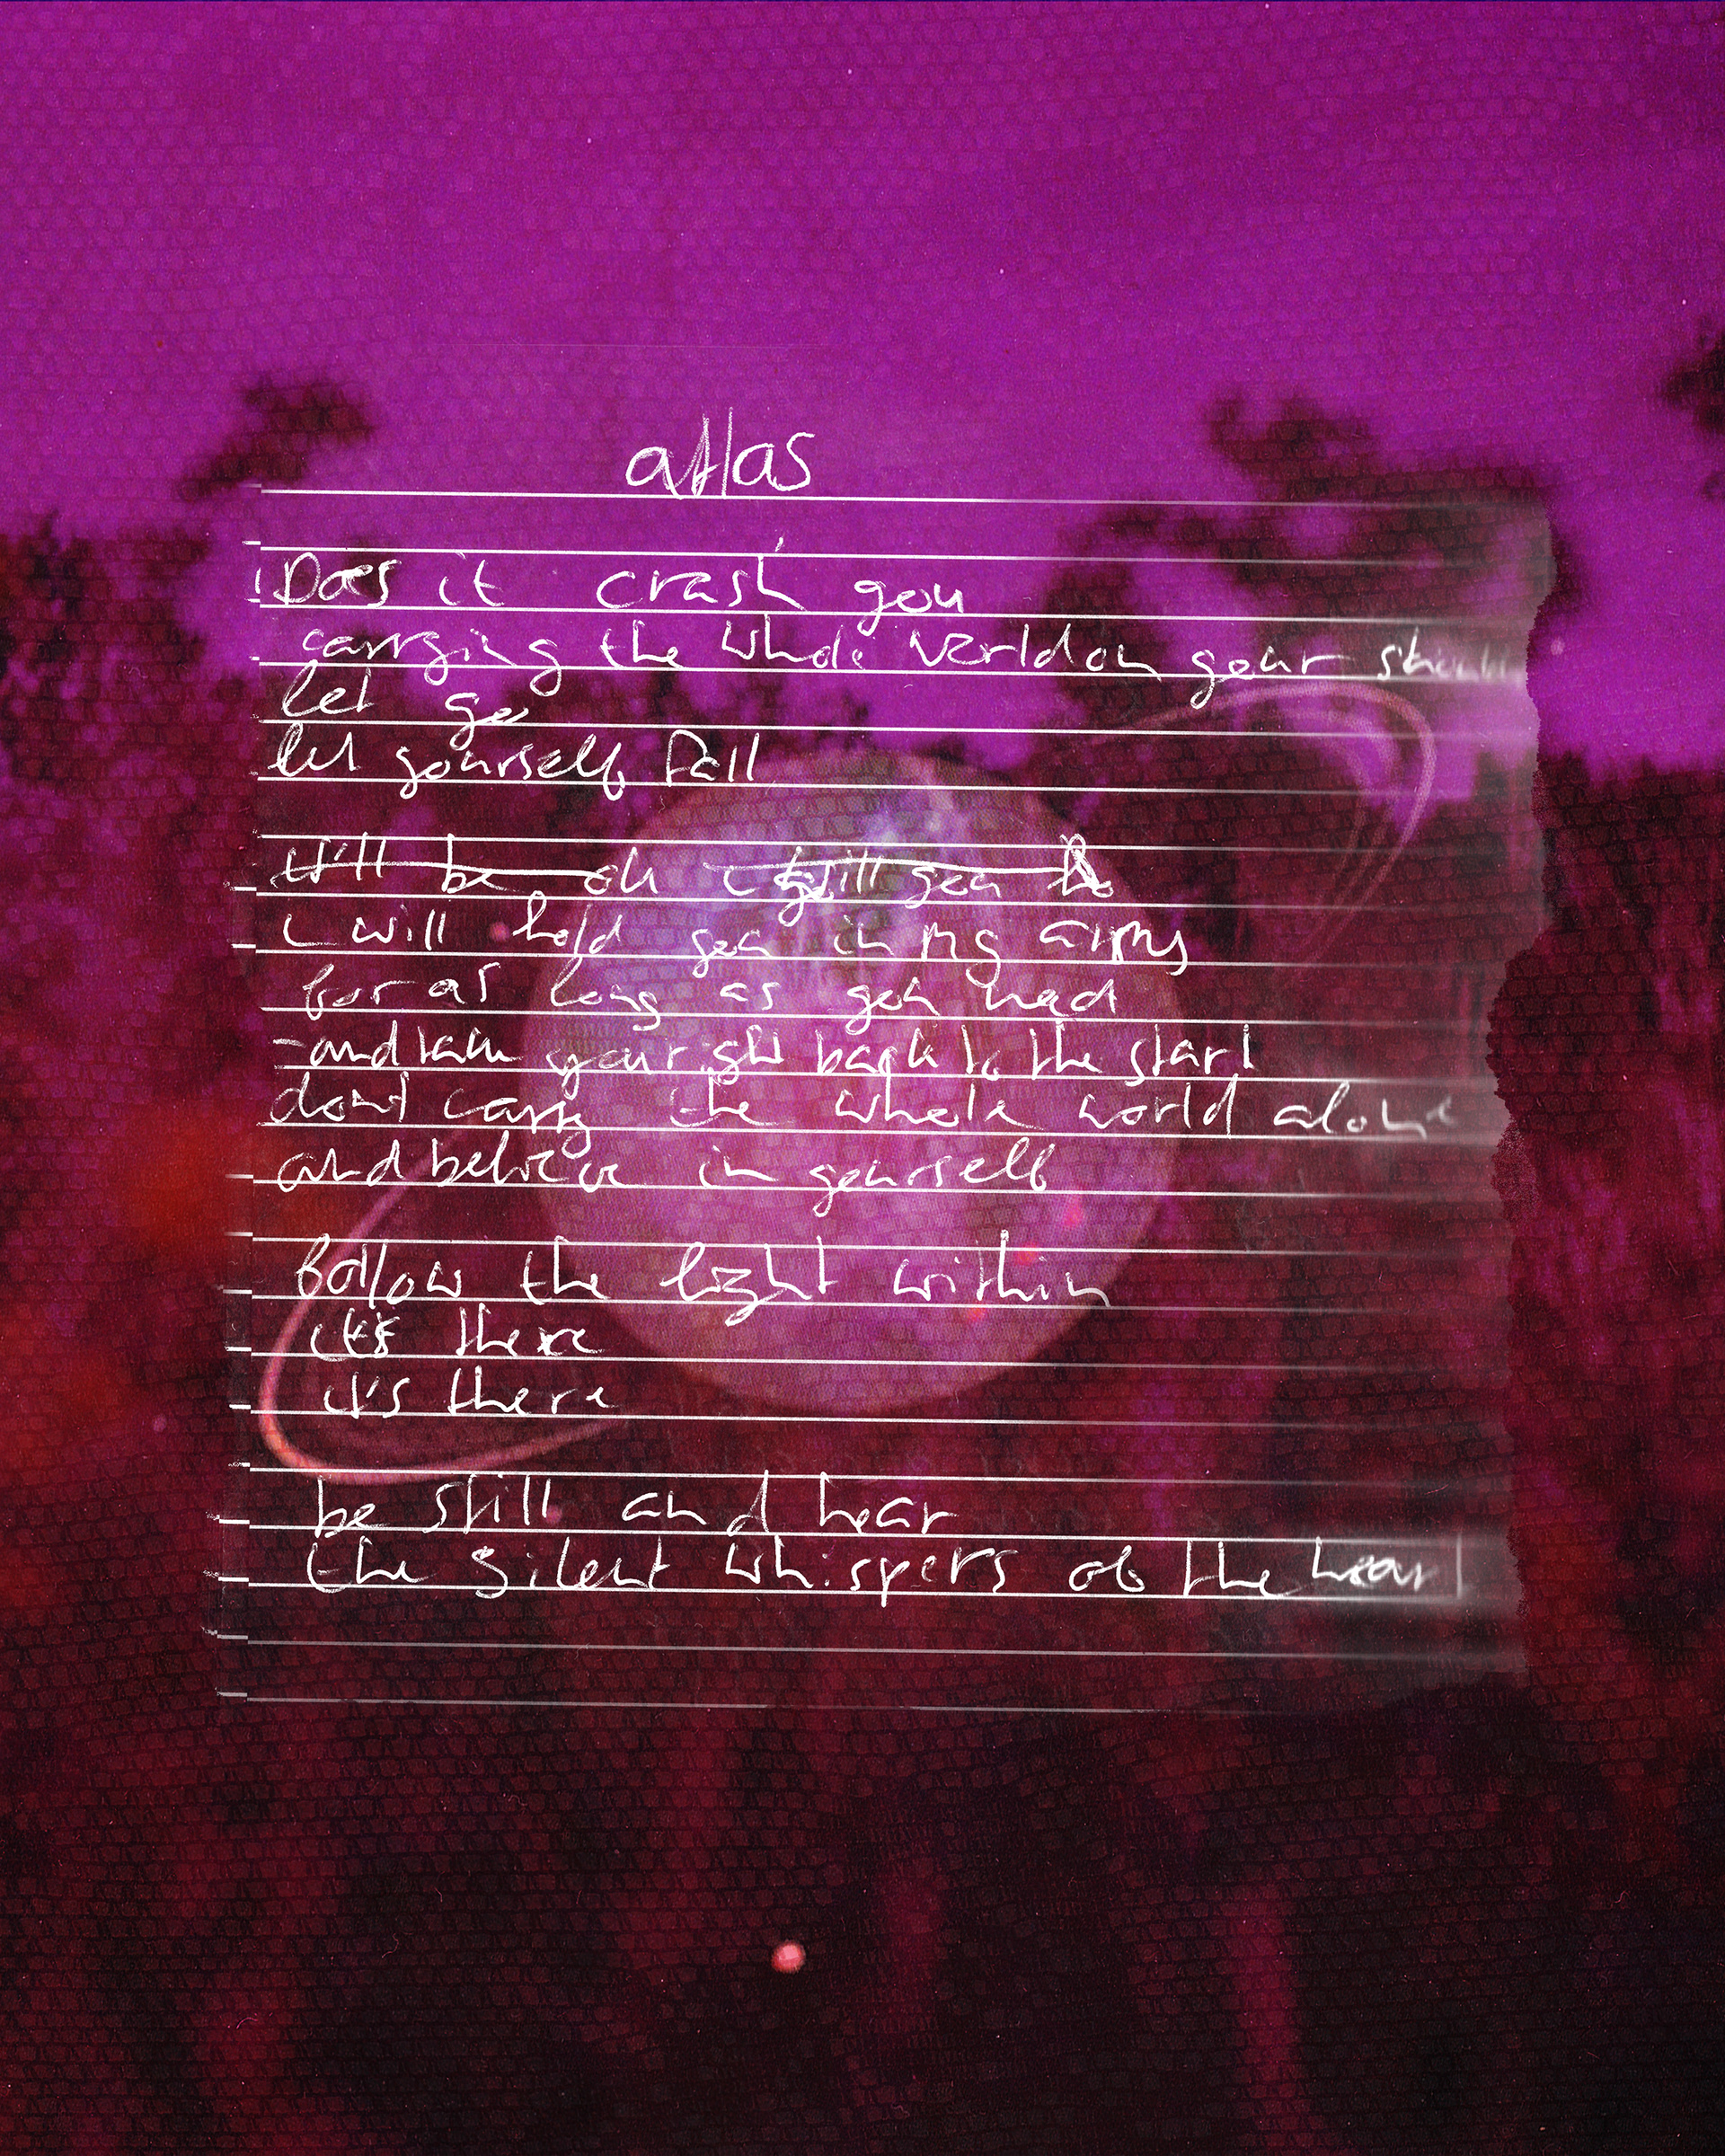 atlas
Does it crash you
carrying the whole world on your
let go
let yourself fall
i will hold you in my arms
for as long as you need
and back to the start
dont carry the whole world alone
and believe in yourself
follow the light within
it's there
it's there
be still and hear
the silent whispers of the heart